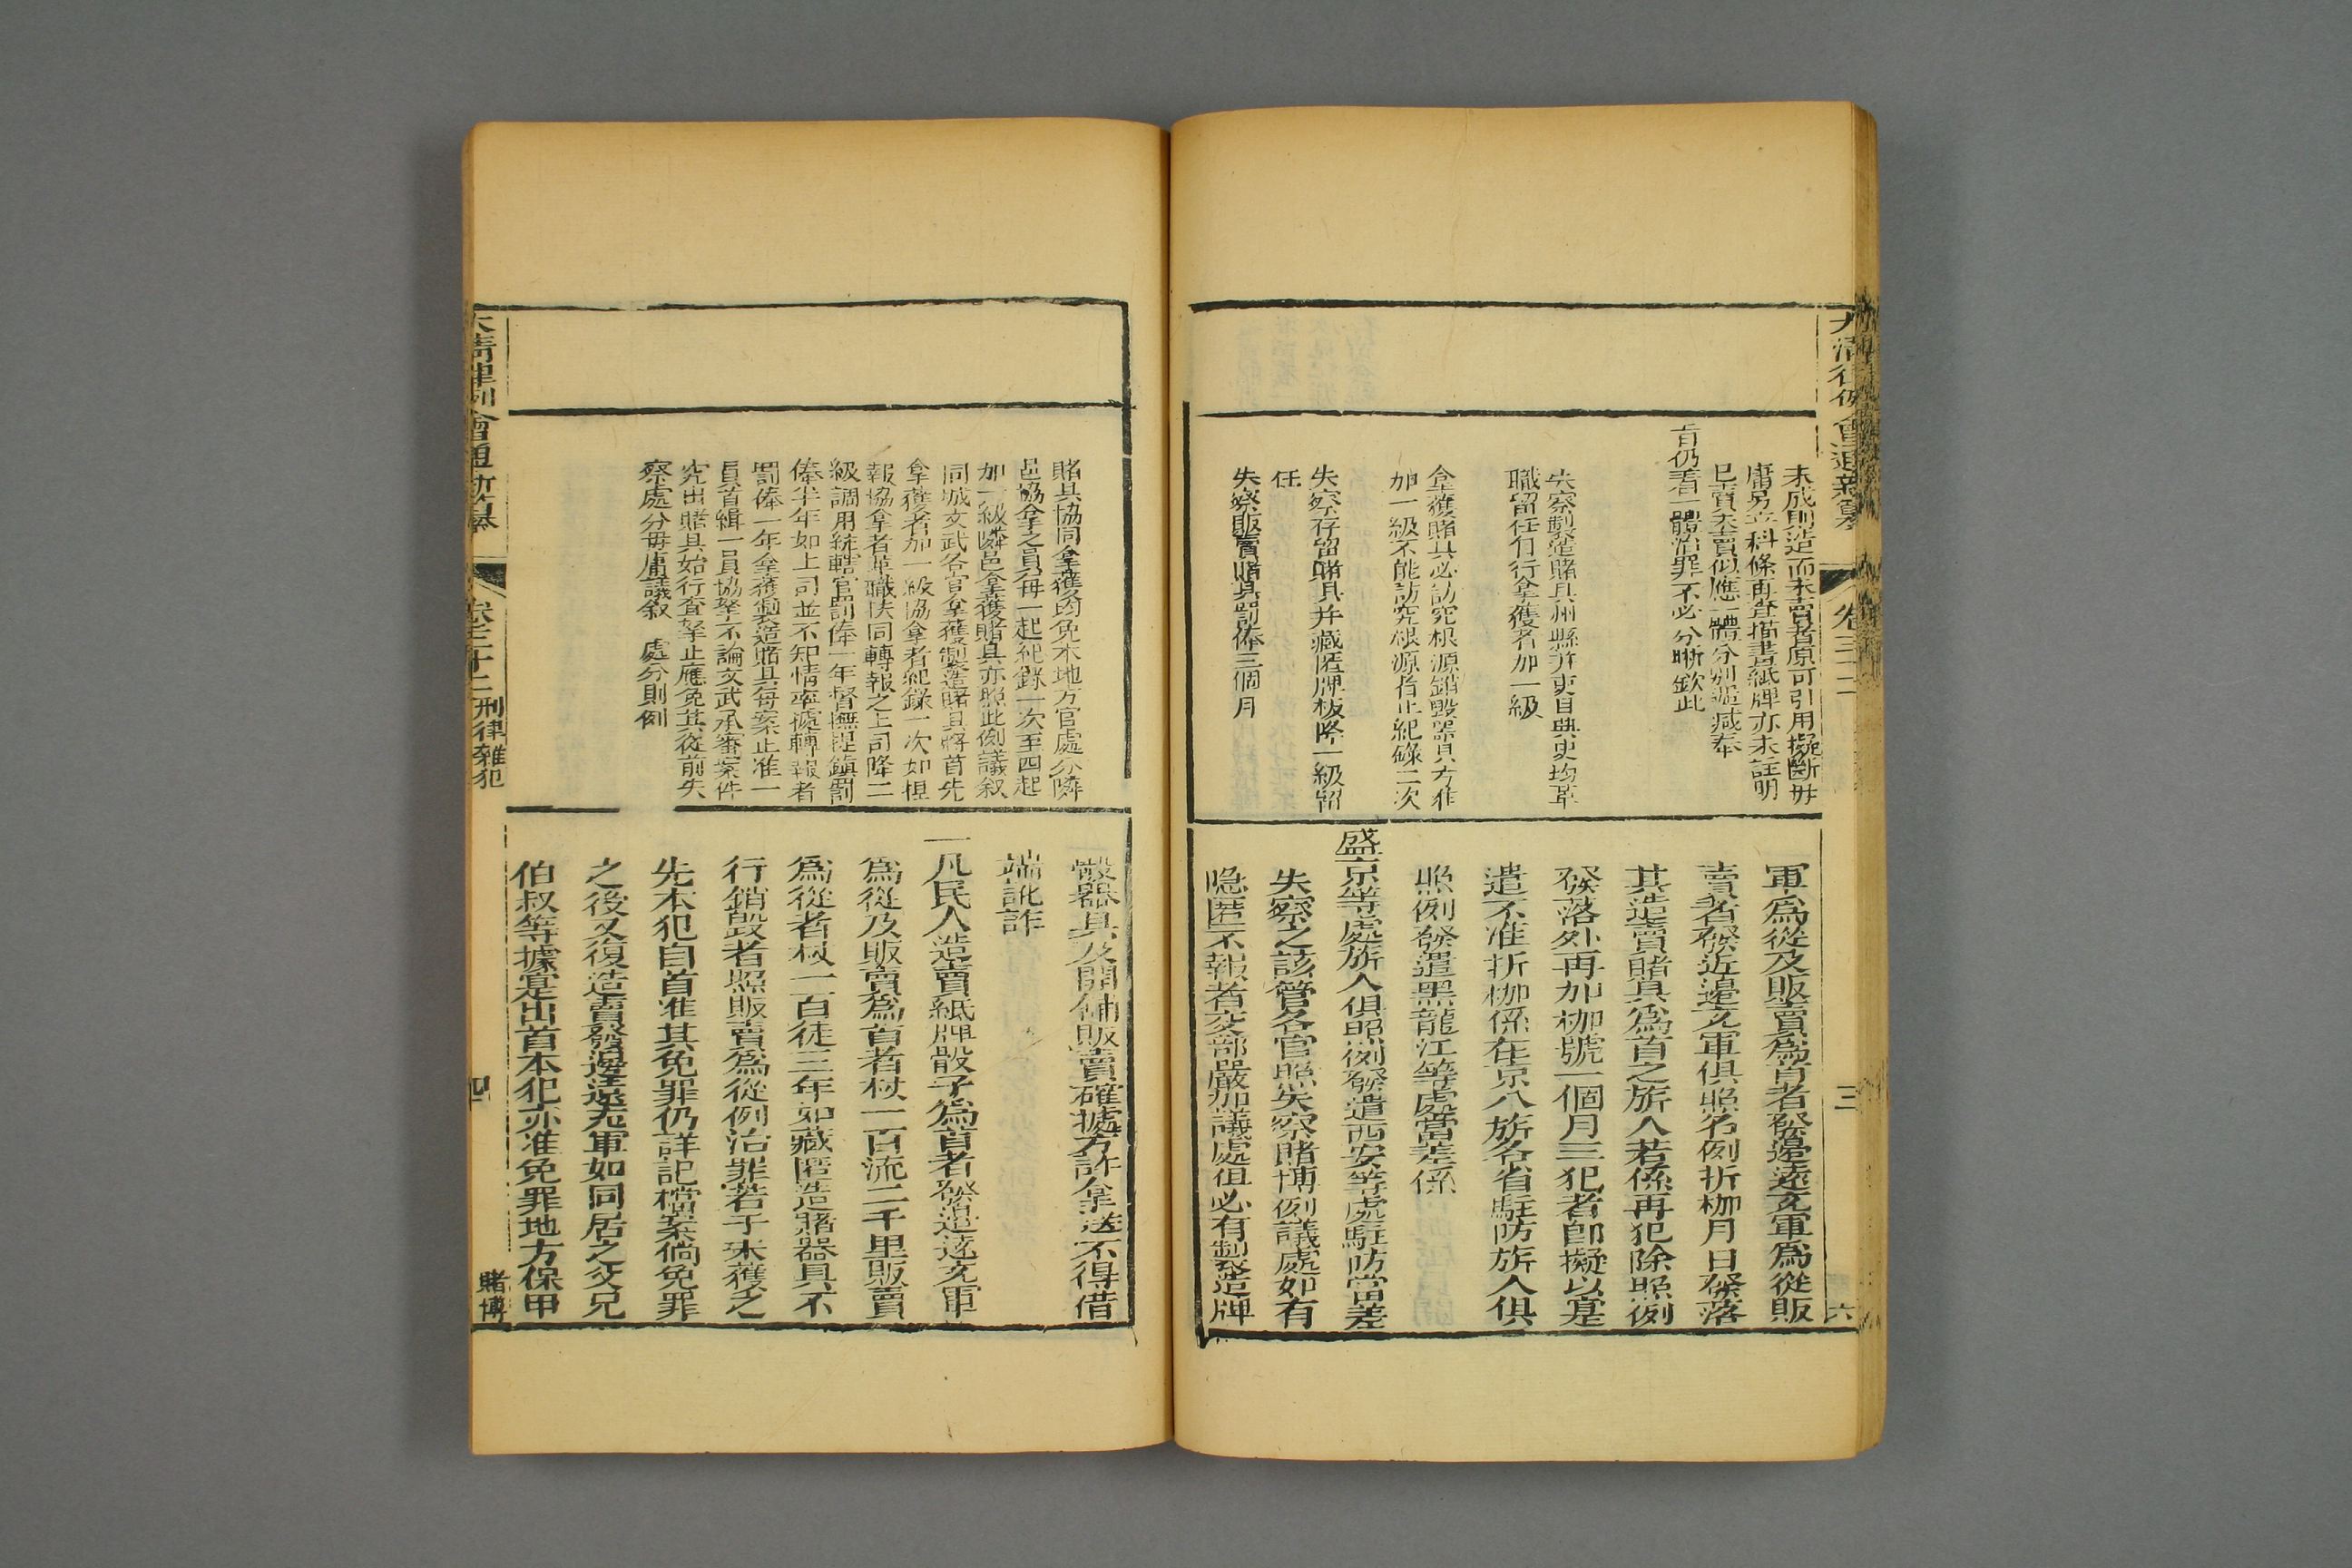 大清律例會通新纂
卷三十二
三
六
未成則造而未賣者原可引用擬斷毋
庸另立科條再查描畫紙牌亦未註明
已賣未賣似應一體分別遞減奉
旨仍看一體治罪不必分晰欽此
失察製造賭具州縣并吏目典史均革
職留任自行拿獲者加一級
拿獲賭具必訪究根源銷毀器具方准
加一級不能訪究根源者止紀錄二次
失察存留賭具并藏匿牌板降一級留
任
失察販賣賭具罰俸三個月
軍爲從及販賣爲首者發邊遠充軍爲從販
賣者發近邊充軍俱照名例折枷月日發落
其造賣賭具爲首之旂人若係再犯除照例
發落外再加枷號一個月三犯者卽擬以實
遣不准折枷係在京八旂各省駐防旂人俱
照例發遣黑龍江等處當差係
盛京等處旂人俱照例發遣西安等處駐防當差
失察之該管各官照失察賭博例議處如有
隱匿不報者交部嚴加議處但必有製造牌
賭具協同拿獲均免本地方官處分隣
邑協拿之員毎一起紀錄一次至四起
加一級隣邑拿獲賭具亦照此例議叙
同城文武各官拿獲製造賭具將首先
拿獲者加一級協拿者紀錄一次如捏
報協拿者革職扶同轉報之上司降二
級調用統轄官罰俸一年督撫提鎮罰
俸半年如上司並不知情率據轉報者
罰俸一年拿獲製造賭具每案止准一
員首緝一員協拏不論文武承審案件
究出賭具始行查拏止應免其從前失
察處分毋庸議叙　處分則例
骰器具及開舖販賣確據方許拿送不得借
端訛詐
一凡民人造賣紙牌骰子爲首者發邊遠充軍
爲從及販賣爲首者杖一百流二千里販賣
爲從者杖一百徒三年如藏匿造賭器具不
行銷毀者照販賣爲從例治罪若于未獲之
先本犯自首准其免罪仍詳記檔案倘免罪
之後又復造賣發邊遠充軍如同居之父兄
伯叔等據實出首本犯亦准免罪地方保甲
大清律例會通新纂
卷三十二
刑律雜犯
四
賭博